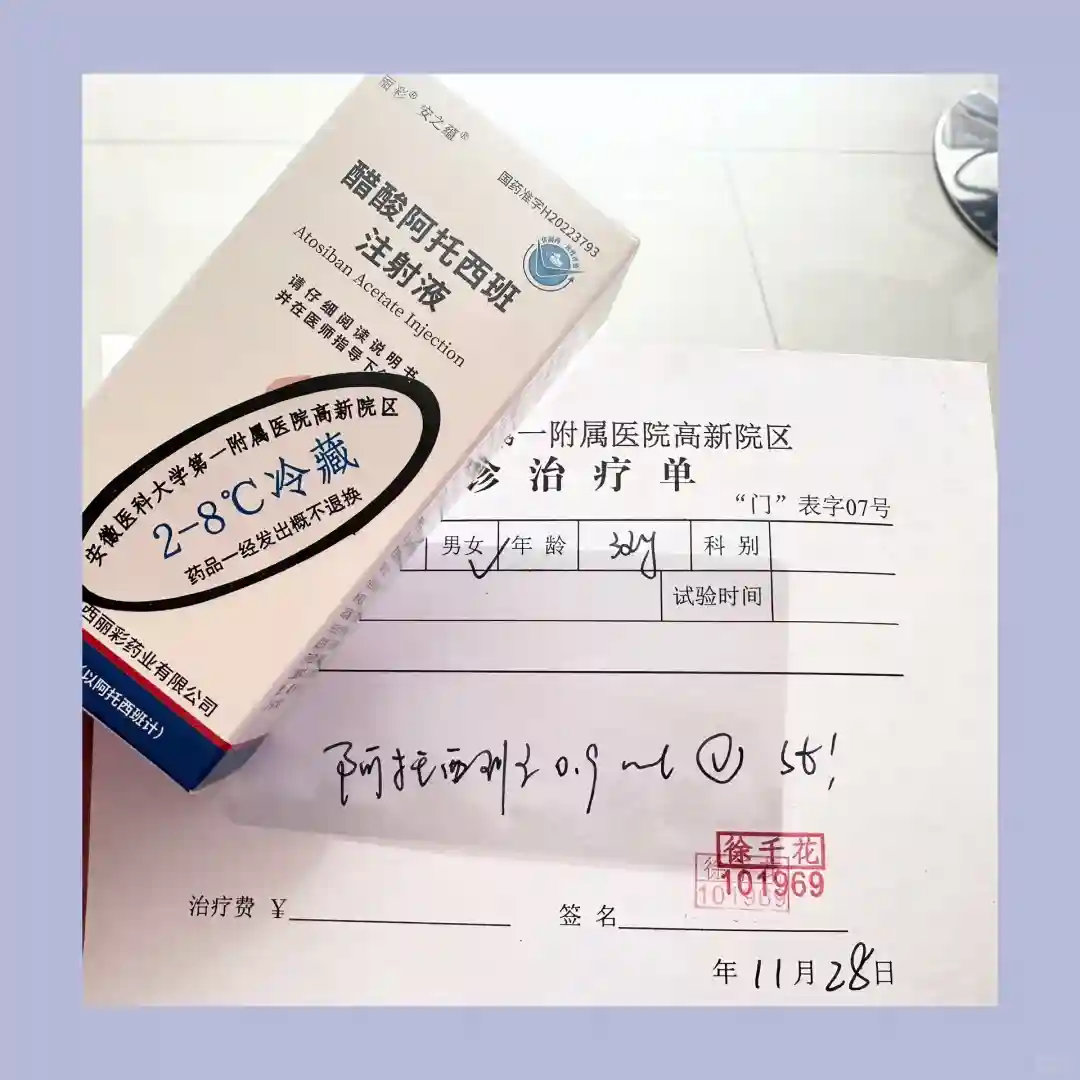 丽彩® 安之蕴®
国药准字H20223793
醋酸阿托西班
注射液
Atosiban Acetate Injection
请仔细阅读说明书
并在医师指导下
安徽医科大学第一附属医院高新院区
2-8℃冷藏
药品一经发出概不退换
西丽彩药业有限公司
(以阿托西班计)
第一附属医院高新院区
诊治疗单
“门”表字07号
男女✓ 年龄 32y 科别
试验时间
阿托西班 0.9 ml Ⓥ st!
徐千花
101969
101969
治疗费 ¥
签名
年 11月28日